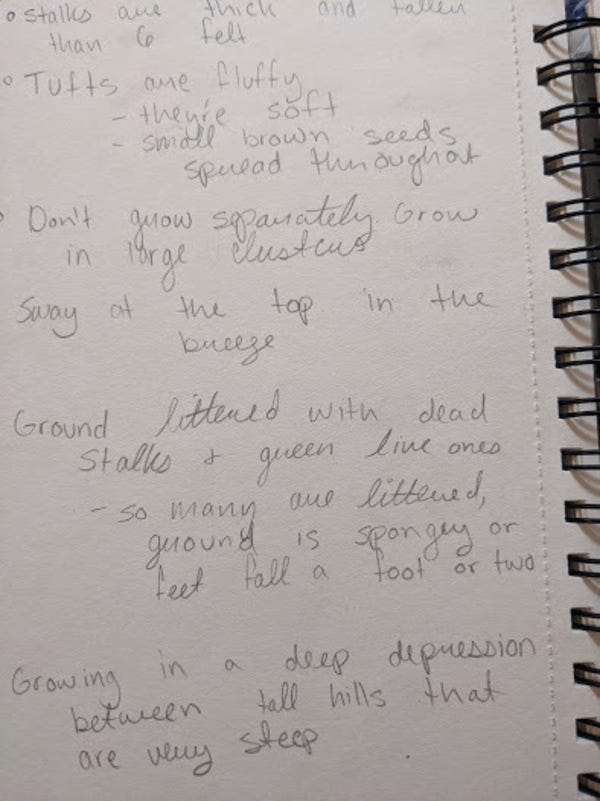 • stalks are thick and taller
than 6 felt
• Tufts are fluffy
- they're soft
- small brown seeds
spread throughout
• Don't grow sqparately. Grow
in large clusters
Sway at the top in the
breeze
Ground littered with dead
stalks + green live ones
- so many are littered,
ground is spongey or
feet fall a foot or two
Growing in a deep depression
between tall hills that
are very steep